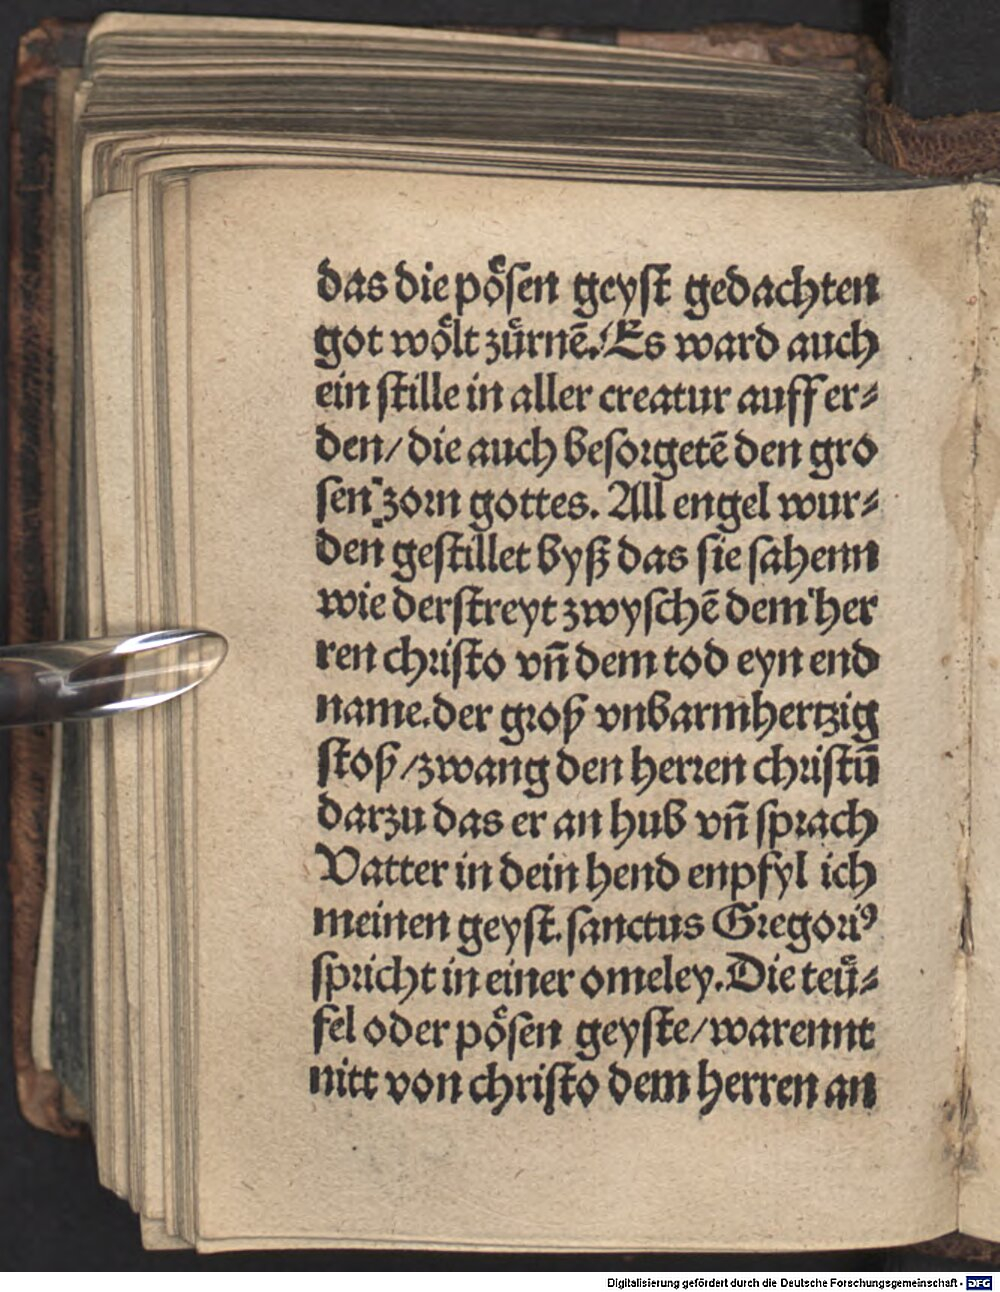 das die poͤsen geyst gedachten
got woͤlt zuͤrnē. Es ward auch
ein stille in aller creatur auff er⸗
den/ die auch besorgetē den gro
sen zorn gottes. All engel wur⸗
den gestillet byß das sie sahenn
wie derstreyt zwyschē dem her
ren christo vn̄ dem tod eyn end
name. der groß vnbarmhertzig
stoß /zwang den herren christū
darzu das er an hub vn̄ sprach
Vatter in dein hend enpfyl ich
meinen geyst. sanctus Gregoriꝰ
spricht in einer omeley. Die teuͤ⸗
fel oder poͤsen geyste/ warennt
nitt von christo dem herren an
Digitalisierung gefördert durch die Deutsche Forschungsgemeinschaft - DFG